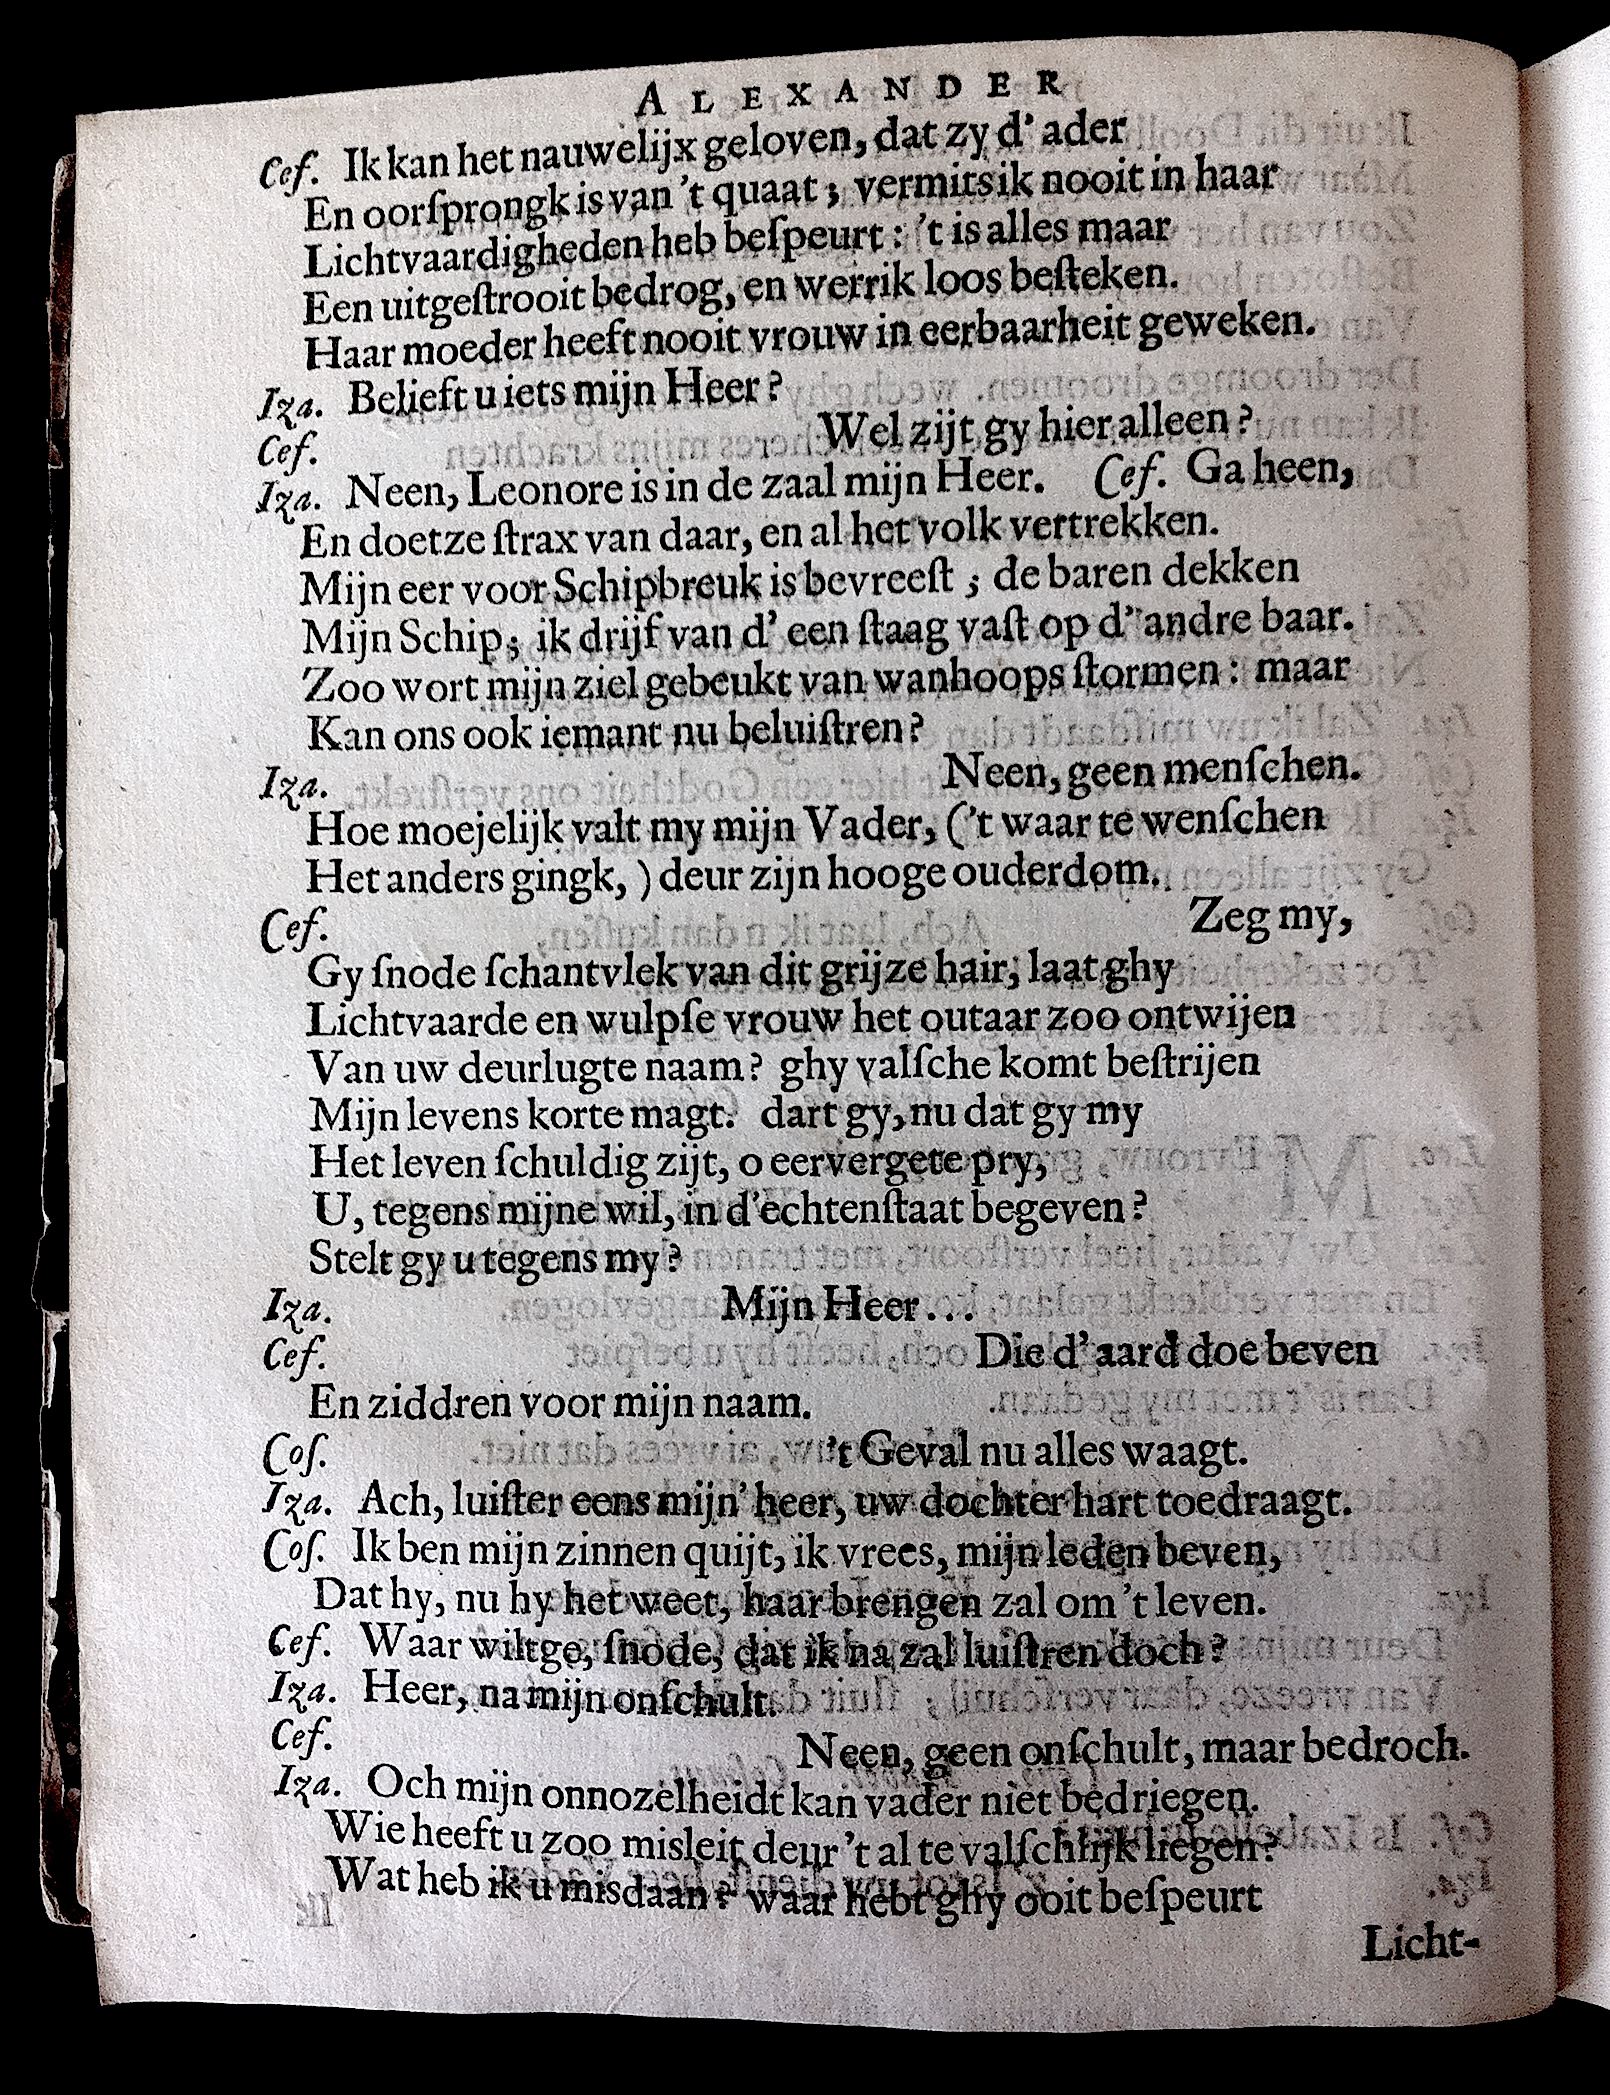 ALEXANDER
Ceſ. Ik kan het nauwelijx geloven, dat zy d' ader
En oorſprongk is van 't quaat; vermits ik nooit in haar
Lichtvaardigheden heb beſpeurt: 't is alles maar
Een uitgeſtrooit bedrog, en werrik loos beſteken.
Haar moeder heeft nooit vrouw in eerbaarheit geweken.
Iza. Belieft u iets mijn Heer?
Ceſ. Wel zijt gy hier alleen?
Iza. Neen, Leonore is in de zaal mijn Heer. Ceſ. Ga heen,
En doetze ſtrax van daar, en al het volk vertrekken.
Mijn eer voor Schipbreuk is bevreeſt; de baren dekken
Mijn Schip; ik drijf van d' een ſtaag vaſt op d' andre baar.
Zoo wort mijn ziel gebeukt van wanhoops ſtormen: maar
Kan ons ook iemant nu beluiſtren?
Iza. Neen, geen menſchen.
Hoe moejelijk valt my mijn Vader, ('t waar te wenſchen
Het anders gingk,) deur zijn hooge ouderdom.
Ceſ. Zeg my,
Gy ſnode ſchantvlek van dit grijze hair, laat ghy
Lichtvaarde en wulpſe vrouw het outaar zoo ontwijen
Van uw deurlugte naam? ghy valſche komt beſtrijen
Mijn levens korte magt. dart gy, nu dat gy my
Het leven ſchuldig zijt, o eervergete pry,
U, tegens mijne wil, in d'echtenſtaat begeven?
Stelt gy u tegens my?
Iza. Mijn Heer...
Ceſ. Die d' aard doe beven
En ziddren voor mijn naam.
Coſ. 't Geval nu alles waagt.
Iza. Ach, luiſter eens mijn' heer, uw dochter hart toedraagt.
Coſ. Ik ben mijn zinnen quijt, ik vrees, mijn leden beven,
Dat hy, nu hy het weet, haar brengen zal om 't leven.
Ceſ. Waar wiltge, ſnode, dat ik na zal luiſtren doch?
Iza. Heer, na mijn onſchult.
Ceſ. Neen, geen onſchult, maar bedroch.
Iza. Och mijn onnozelheidt kan vader niet bedriegen.
Wie heeft u zoo misleit deur 't al te valſchlijk liegen?
Wat heb ik u misdaan? waar hebt ghy ooit beſpeurt
Licht-